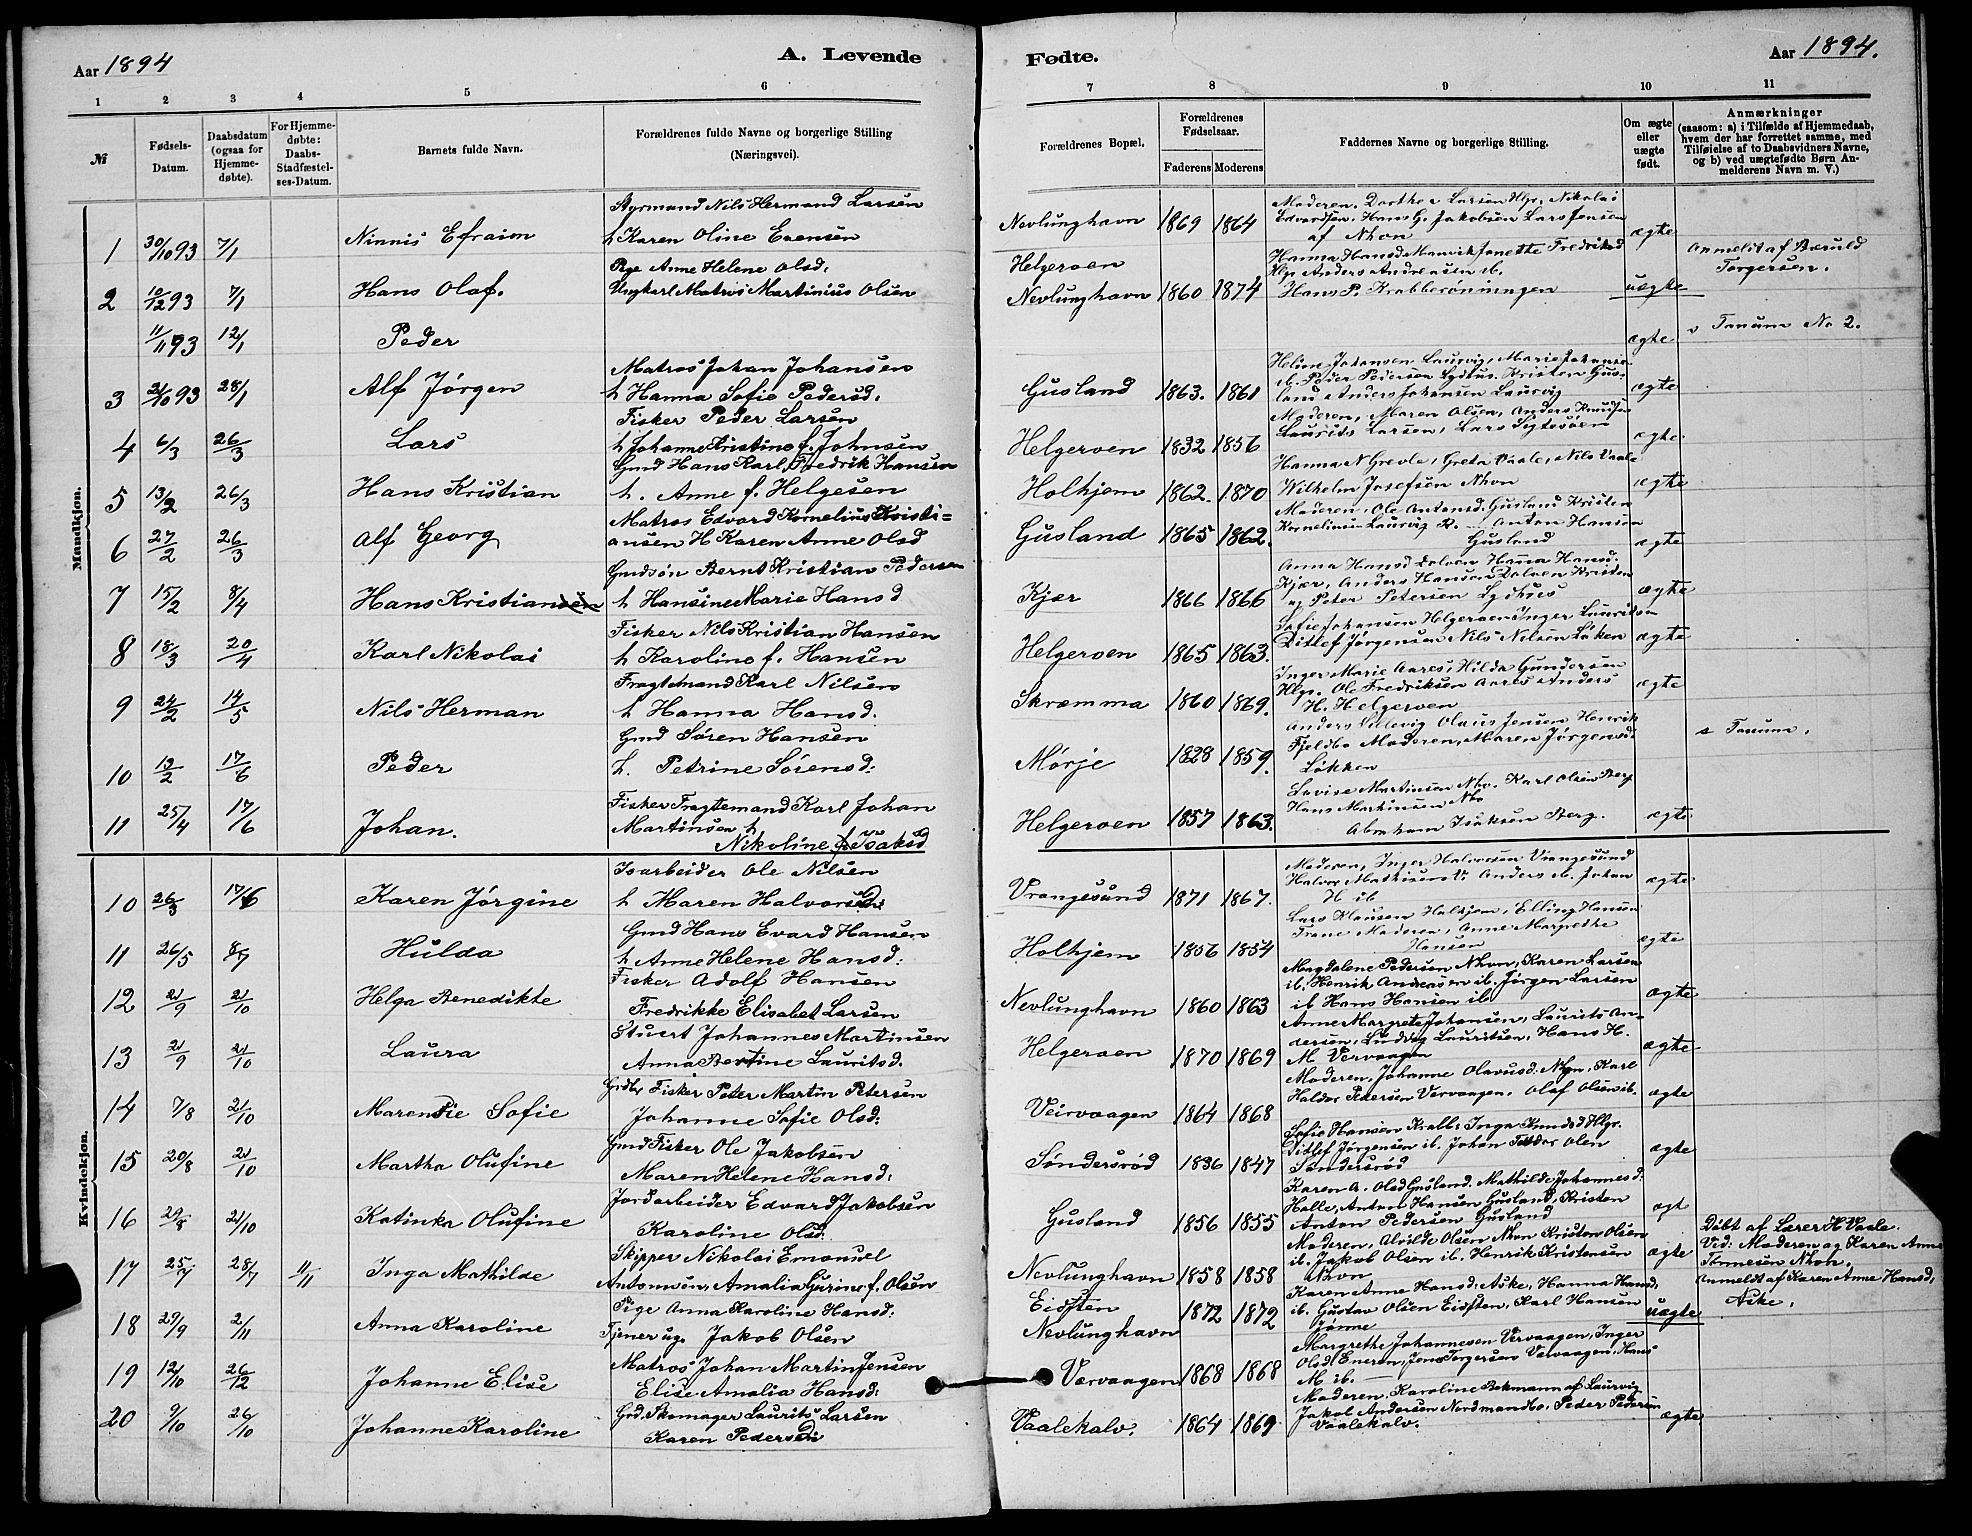 Aar 1894
A. Levende
1 2 3 4 5 6
№
Fødsels-Datum.
Daabsdatum (ogsaa for Hjemmedøbte).
For Hjemmedøbte: Daabs-Stadfæstelses-Datum.
Barnets fulde Navn.
Forældrenes fulde Navne og borgerlige Stilling
(Næringsvei).
Mandkjøn.
Styrmand Nils Hermand Larsen
1 30/10 93 7/1 Ninnis Efraim h Karen Oline Evensen
Pige Anne Helene Olsd.
2 10/12 93 7/1 Hans Olaf. Ungkarl Matros Martinius Olsen
11/11 93 12/1 Peder
Matros Johan Johansen
3 21/10 93 28/1 Alf Jørgen h Hanna Sofie Pedersd.
Fisker Peder Larsen
4 6/3 26/3 Lars h Johanne Kristine f. Johnsen
Gmd Hans Karl Fredrik Hansen
5 13/2 26/3 Hans Kristian h. Anne f. Helgesen
Matros Edvard Kornelius Kristi=
6 27/2 26/3 Alf Georg ansen H Karen Anne Olsd
Gmdsøn Bernt Kristian Pedersen
7 15/2 8/4 Hans Kristiansen h Hansine Marie Hansd
Fisker Nils Kristian Hansen
8 18/3 20/4 Karl Nikolai h Karoline f. Hansen
Fragtemand Karl Nilsen
9 22/2 14/5 Nils Herman h Hanna Hansd.
Gmd Søren Hansen
10 13/2 17/6 Peder h. Petrine Sørensd.
Fisker Fragtemand Karl Johan
11 25/4 17/6 Johan. Martinsen h
Nikoline f. Isaksd
Kvindekjøn.
Isarbeider Ole Nilsen
10 26/3 17/6 Karen Jørgine h Maren Halvorsd.
Gmd Hans Evard Hansen
11 26/5 8/7 Hulda h Anne Helene Hansd.
Fisker Adolf Hansen
12 2/9 21/10 Helga Benedikte Fredrikke Elisabet Larsen
Stuert Johannes Martinsen
13 2/9 21/10 Laura Anna Bertine Lauritsd.
Grdbr Fisker Peter Martin Petersen
14 7/8 21/10 Marensie Sofie Johanne Sofie Olsd.
Gmd Fisker Ole Jakobsen
15 20/8 21/10 Martha Olufine Maren Helene Hansd.
Jordarbeider Edvard Jakobsen
16 29/8 21/10 Katinka Olufine Karoline Olsd.
Skipper Nikolai Emanuel
17 25/7 28/7 11/11 Inga Mathilde Antomsen, Amalia Gurine f. Olsen
Pige Anna Karoline Hansd.
18 29/9 2/11 Anna Karoline Tjener ug. Jakob Olsen
Matros Johan Martin Jensen
19 12/10 26/12 Johanne Elise Elise Amalia Hansd.
Grd. Skomager Laurits Larsen
20 9/10 26/10 Johanne Karoline Karen Pedersen
Fødte.
Aar 1894.
7 8 9 10 11
Forældrenes Bopæl.
Forældrenes Fødselsaar.
Faderens Moderens
Faddernes Navne og borgerlige Stilling.
Om ægte eller uægte født.
Anmærkninger
(saasom: a) i Tilfælde af Hjemmedaab, hvem der har forrettet samme, med Tilføielse af to Daabsvidners Navne, og b) ved uægtefødte Børn Anmelderens Navn m. V.)
Moderen, Dorthea Larsen Hlgr. Nikolai
Nevlunghavn 1869 1864 Edvardsen, Hans G. Jakobsen Lars Jensen
af Nhvn ægte
Helgeroen Hanna Hansd Manvik Janette Fredriksd Anmeldt af Bæruld
Hlgr Anders Andreasen ib. Torgersen.
Nevlunghavn 1860 1874 Hans P. Krabberønningen uægte
ægte v Tanum No 2.
Heline Johansen Laurvig, Marie Johans
Gusland 1863. 1861 ib. Peder Pedersen Lydhus. Kristen Gus-
land Anders Johansen Laurvig ægte
Moderen, Maren Olsen, Anders Knudsen
Helgeroen 1832 1856 Laurits Larsen, Lars ægte
Hanna N Grevle, Grete Vaale, Nils Vaale
Holhjem 1862. 1870 Wilhelm Josefsen Nhvn ægte
Moderen, Ole Antonsd. Gusland Kristen
Gusland 1865 1862. Kornelius Laurvig Anton Hansen
Gusland ægte
Anna Hansd Dolven Hanna Hansd.
Kjær 1866 1866 Kjær, Anders Hansen Dolven Kristen
og Peter Petersen Lydhus ægte
Sofie Johansen Helgeroen Inger Lauritsen
Helgeroen 1865 1863. Ditlef Jørgensen Nils Nilsen Løken ægte
Inger Marie Aares, Hilda Gundersen
Skræmma 1860 1869. Hlgr. Ole Fredriksen Aares Anders
H. Helgeroen ægte
Anders Olaus Jensen Henrik
Mørje 1828 1859. Fjeldbo Moderen, Maren Jørgensd. s Tanum.
Løkken
Lovise Martinsen Nhv. Karl Olsen Berg
Helgeroen 1857 1863. Hans Martinsen Nhv
Abraham Isaksen Berg. ægte
Moderen, Inger Halvorsen Vrangesund
Vrangesund 1871 1867. Halvor Mathisen V. Anders ib. Johan
H ib ægte
Lars Klausen Holhjem, Elling Hansen
Holhjem 1856 1854 Trane Moderen, Anne Margrethe
Hansen ægte
Magdalene Pedersen Nhvn, Karen Larsen
Nevlunghavn 1860 1863 ib. Henrik Andreasen ib. Jørgen Larsen
ib Hans Hansen ib ægte
Anne Margrete Johansen, Laurits An-
Helgeroen 1870 1869 dersen, Ludvig Lauritsen, Hans H.
M Vervaagen ægte
Moderen, Johanne Olavusd. Nhvn, Karl
Veirvaagen 1864 1868 Haldor Pedersen Vervaagen. Olaf Olsen ib. ægte
Sofie Hansen Krabb. Inga Knudsd Hlgr.
Søndersrød 1836 1847 Ditlef Jørgensen ib. Johan Teodor Olen
Søndersrød ægte
Karen A. Olsd Gusland. Mathilde Johannesd.
Gusland 1856 1855 Holle, Anton Hansen Gusland, Kristen
Anton Pedersen Gusland ægt
Moderen, Alvilde Olsen Nhvn Kristen Olsen Døbt af Lærer H. Vaale.
Nevlunghavn 1858 1858 ib. Jakob Olsen ib. Henrik Kristensen ægte Ved: Moderen og Karen Anne
Nhvn Tønnesen Nhvn.
Eidsten 1872 1872 Karen Anne Hansd. Aske, Hanna Hansd, Anmeldt af Karen Anne Hansd,
Nevlunghavn ib. Gustav Olsen Eidsten, Karl Hansen uægte Aske.
Tjønne
Margrethe Johannesen Vervaagen, Inger
Værvaagen 1868 1868 Olsd Eneren, Jens Torgersen Vervaagen, Hans
M ib. —
Moderen, Karoline Bekmann af Laurvig
Vaalekalv. 1864 1869 Jakob Andersen Nordmandbo, Peder Pedersen
Vaalekalv. ægte